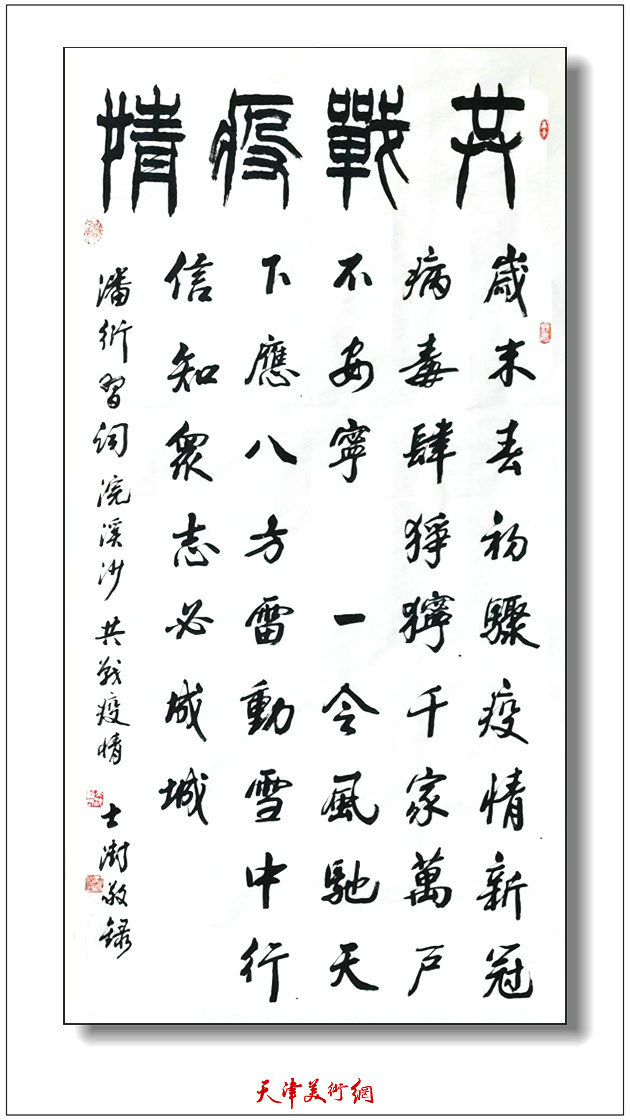 共戰疫情
歲末春初驟疫情新冠
病毒肆猙獰千家萬戶
不安寧 一令風馳天
下應八方雷動雪中行
信知眾志必成城
潘衍習詞浣溪沙 共戰疫情 士澍敬錄
天津美術網